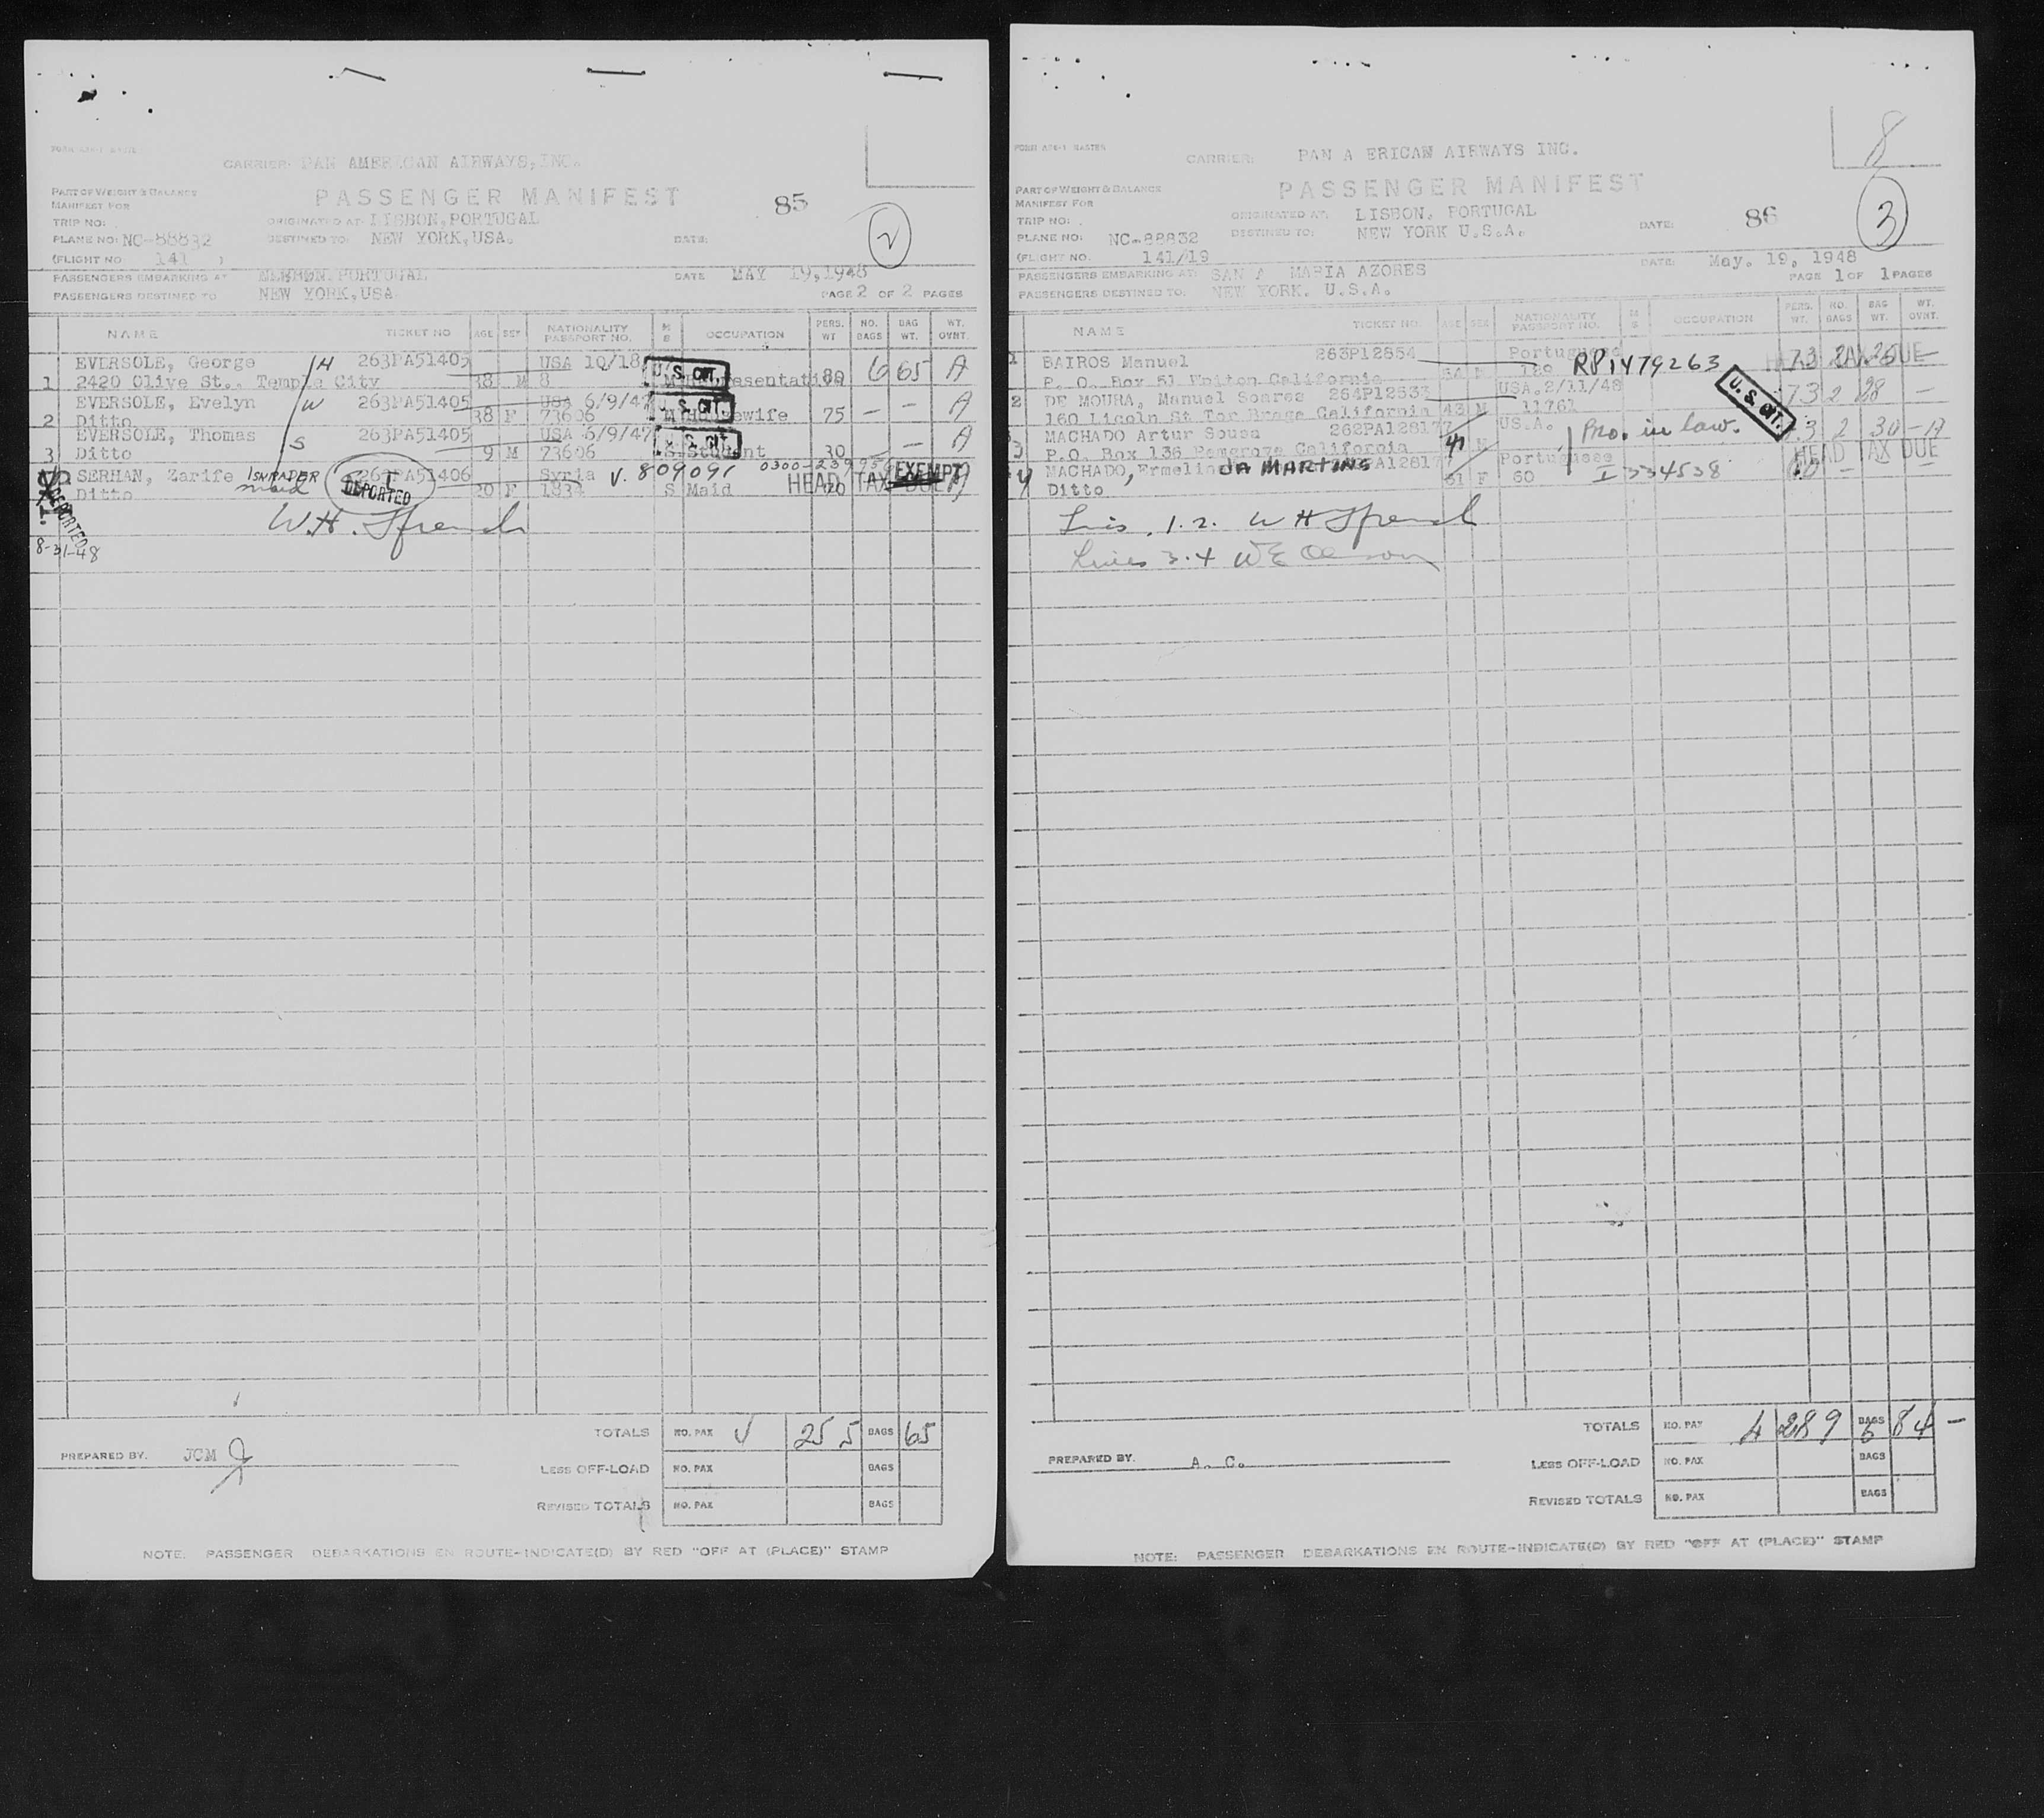 CARRIER: PAN AMERICAN AIRWAYS, INC.
PART OF WEIGHT & BALANCE
MANIFEST FOR
PASSENGER MANIFEST
85
TRIP NO:
ORIGINATED AT: LISBON, PORTUGAL
2
PLANE NO: NC-88832
DESTINED TO: NEW YORK, USA.
DATE:
(FLIGHT NO 141 )
PASSENGERS EMBARKING AT PORTUGAL
DATE MAY 19, 1948
PASSENGERS DESTINED TO NEW YORK, USA
PAGE 2 OF 2 PAGES
NAME TICKET NO AGE SEX NATIONALITY PASSPORT NO. M S OCCUPATION PERS. WT NO. BAGS BAG WT. WT. OVNT.
EVERSOLE, George H 263PA51405 USA 10/18 U.S. CIT. 6 65 A
1 2420 Olive St., Temple City 38 M 8 M 80
EVERSOLE, Evelyn W 263PA51405 USA 6/9/47 U.S. CIT. — — A
2 Ditto 38 F 73606 M Housewife 75
EVERSOLE, Thomas S 263PA51405 USA 6/9/47 U.S. CIT. — — A
3 Ditto 9 M 73606 S Student 30
SERHAN, Zarife ISKNADER 263PA51406 Syria V. 809091 EXEMPT
Ditto maid DEPORTED 20 F 1834 S Maid HEAD TAX DUE 70 A
DEPORTED
W.H. French
8-31-48
TOTALS NO. PAX 255 BAGS 65
PREPARED BY. JCM
LESS OFF-LOAD NO. PAX BAGS
REVISED TOTALS NO. PAX BAGS
NOTE. PASSENGER DEBARKATIONS EN ROUTE-INDICATE(D) BY RED "OFF AT (PLACE)" STAMP
8
FORM APR-1 MASTER
CARRIER: PAN A ERICAN AIRWAYS INC.
PART OF WEIGHT & BALANCE
MANIFEST FOR
PASSENGER MANIFEST
TRIP NO:
ORIGINATED AT: LISBON, PORTUGAL
DATE: 86
3
PLANE NO: NC-88832
DESTINED TO: NEW YORK U.S.A.
(FLIGHT NO. 141/19
PASSENGERS EMBARKING AT: SAN A MARIA AZORES
DATE: May. 19, 1948
PASSENGERS DESTINED TO. NEW YORK. U.S.A.
PAGE 1 OF 1 PAGES
NAME TICKET NO. AGE SEX NATIONALITY PASSPORT NO. M S OCCUPATION PERS. WT. NO. BAGS BAG WT. WT. OVNT.
1 BAIROS Manuel 263P12854 Portuguesa RP1479263 73 2 26 —
P. O. Box 51 California 54 M 189 HEAD TAX DUE
2 DE MOURA, Manuel Soares 264P12533 USA. 2/11/48 U.S. CIT. 73 2 28 —
160 Licoln St Tor Braga California 43 M 11761
3 MACHADO Artur Sousa 263PA128177 US.A. Pro. in law. 73 2 30 — A
P.O. Box 136 California 41 M HEAD TAX DUE
4 MACHADO, Ermelin DA MARTINS PA128177 Portuguese I 334538
Ditto 31 F 50
1.2. W H French
Lines 3.4 W E
TOTALS NO. PAX 4 289 BAGS 6 84 —
PREPARED BY. A. C.
LESS OFF-LOAD NO. PAX BAGS
REVISED TOTALS NO. PAX BAGS
NOTE: PASSENGER DEBARKATIONS EN ROUTE-INDICATE(D) BY RED "OFF AT (PLACE)" STAMP